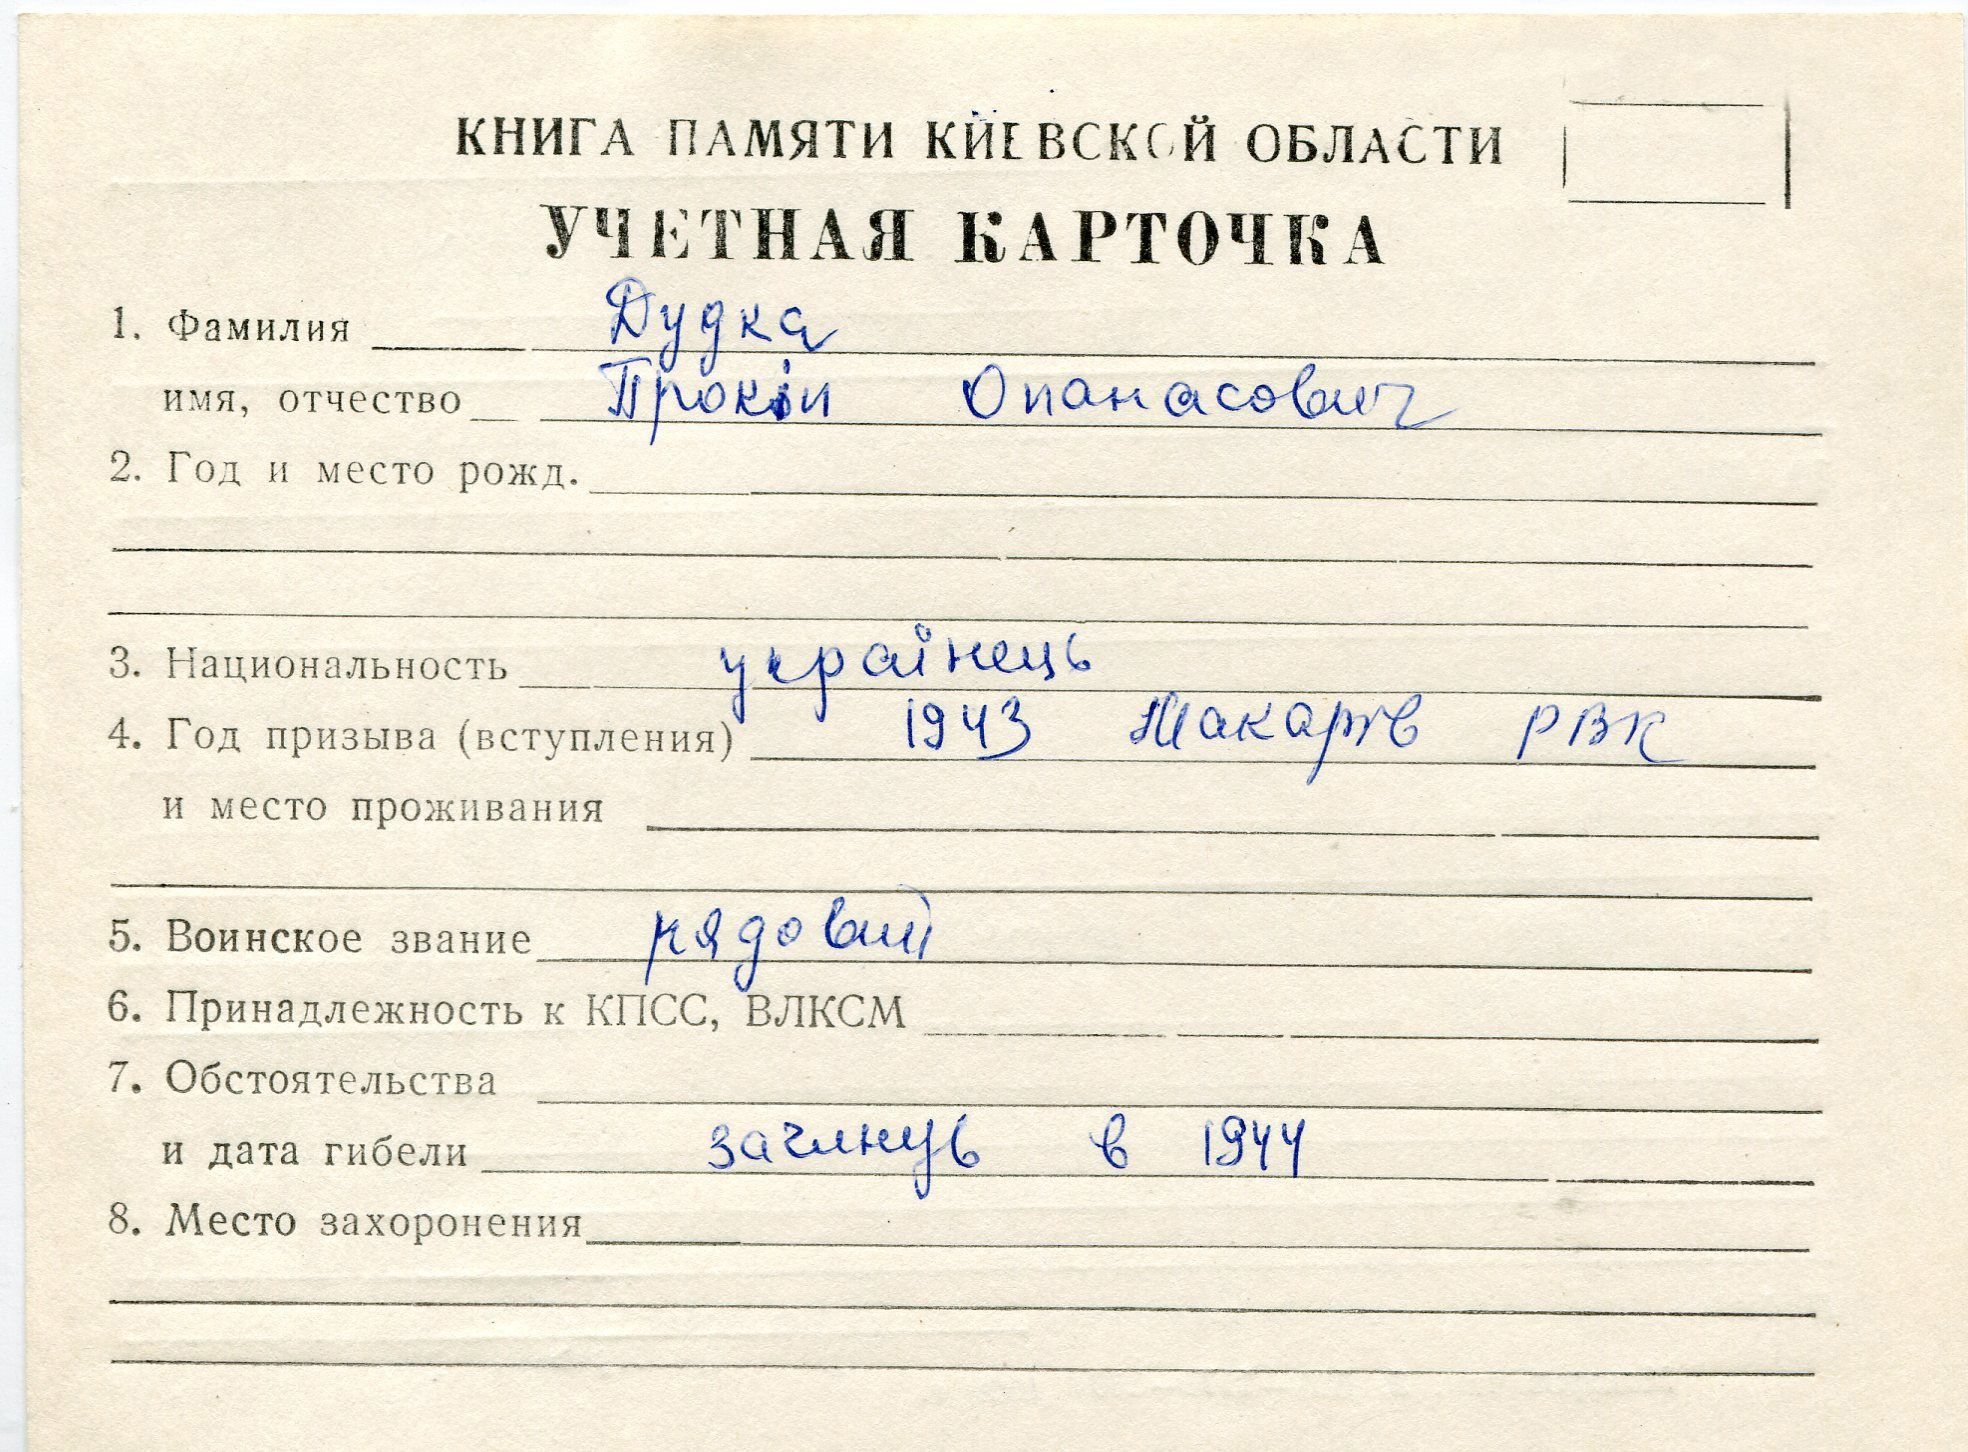 КНИГА ПАМЯТИ КИЕВСКОЙ ОБЛАСТИ
УЧЕТНАЯ КАРТОЧКА
1. Фамилия Дудка
имя, отчество Прокіп Опанасович
2. Год и место рожд.
3. Национальность українець
4. Год призыва (вступления) 1943 Макарів РВК
и место проживания
5. Воинское звание рядовий
6. Принадлежность к КПСС, ВЛКСМ
7. Обстоятельства
и дата гибели загинув в 1944
8. Место захоронения